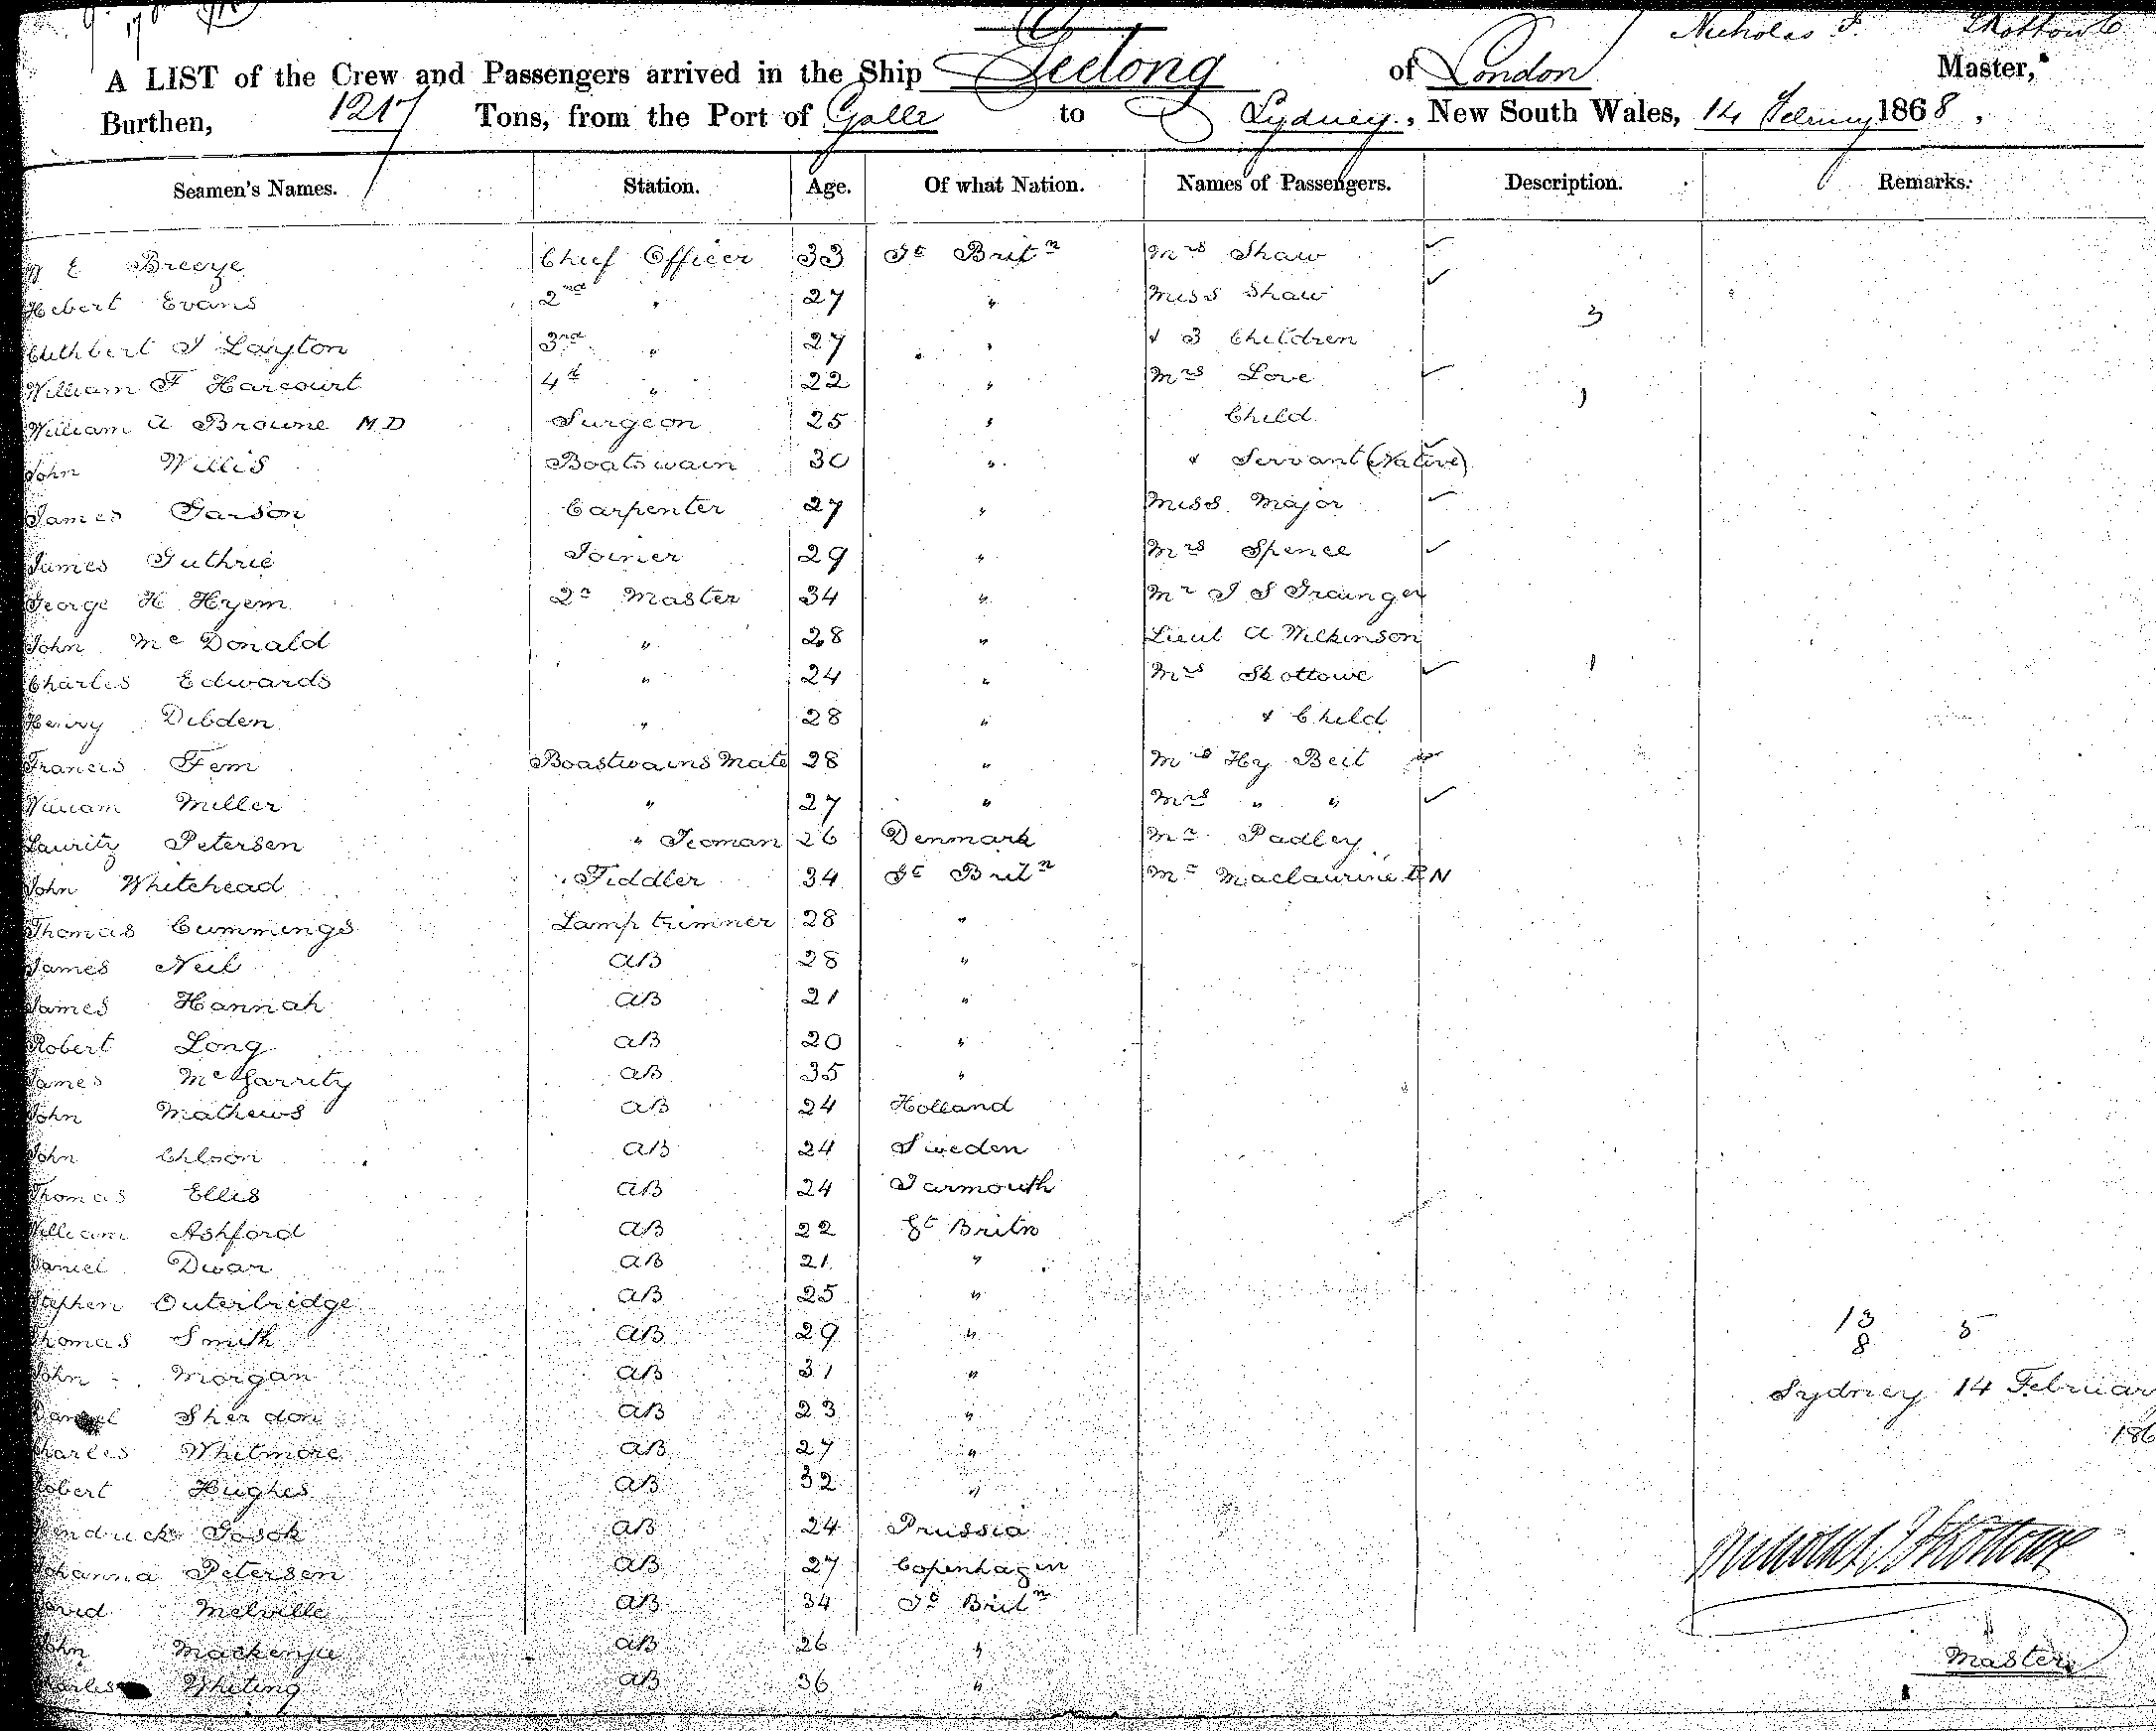 Nicholas F. Skottowe
A LIST of the Crew and Passengers arrived in the Ship Geelong of London Master,
Burthen, 1217 Tons, from the Port of Galle to Sydney, New South Wales, 14 February 1868,
Seamen's Names. Station. Age. Of what Nation. Names of Passengers. Description. Remarks.
E Breeze Chief Officer 33 Gt Britn Mrs Shaw
Hebert Evans 2nd " 27 " Miss Shaw
3
Cuthbert J Layton 3rd " 27 " & 3 Children
William F Harcourt 4th " 22 " Mrs Love
1
William A Browne MD Surgeon 25 " Child
John Willis Boatswain 30 " & Servant (Native)
James Garson Carpenter 27 " Miss Major
James Guthrie Joiner 29 " Mrs Spence
George H Hyem 2r Master 34 " Mr J S Grainger
John McDonald " 28 " Lieut A Wilkinson
Charles Edwards " 24 " Mrs Skottowe 1
Henry Dibden " 28 " & Child
Francis Fem Boastwains Mate 28 " Mr Hy Beit
William Miller " 27 " Mrs " "
Lauritz Petersen " Yeoman 26 Denmark Mr Padley
John Whitehead Fiddler 34 Gt Britn Mr Maclaurine RN
Thomas Cummings Lamp trimmer 28 "
James Neil AB 28 "
James Hannah AB 21 "
Robert Long AB 20 "
James McGarrity AB 35 "
John Mathews AB 24 Holland
John Ohlson AB 24 Sweden
Thomas Ellis AB 24 Yarmouth
William Ashford AB 22 Gt Britn
Daniel Dwan AB 21 "
Stephen Outerbridge AB 25 "
Thomas Smith AB 29 " 13 5
8
John Morgan AB 31 "
Sydney 14 Februar
Daniel Sheridon AB 23 "
186
Charles Whitmore AB 27 "
Robert Hughes AB 32 "
Hendrick AB 24 Prussia
Nicholas F Skottowe
Johanna Petersen AB 27 Copenhagen
David Melville AB 34 Gt Britn
John Mackenzie AB 26 "
Master
Charles Whiting AB 36 "